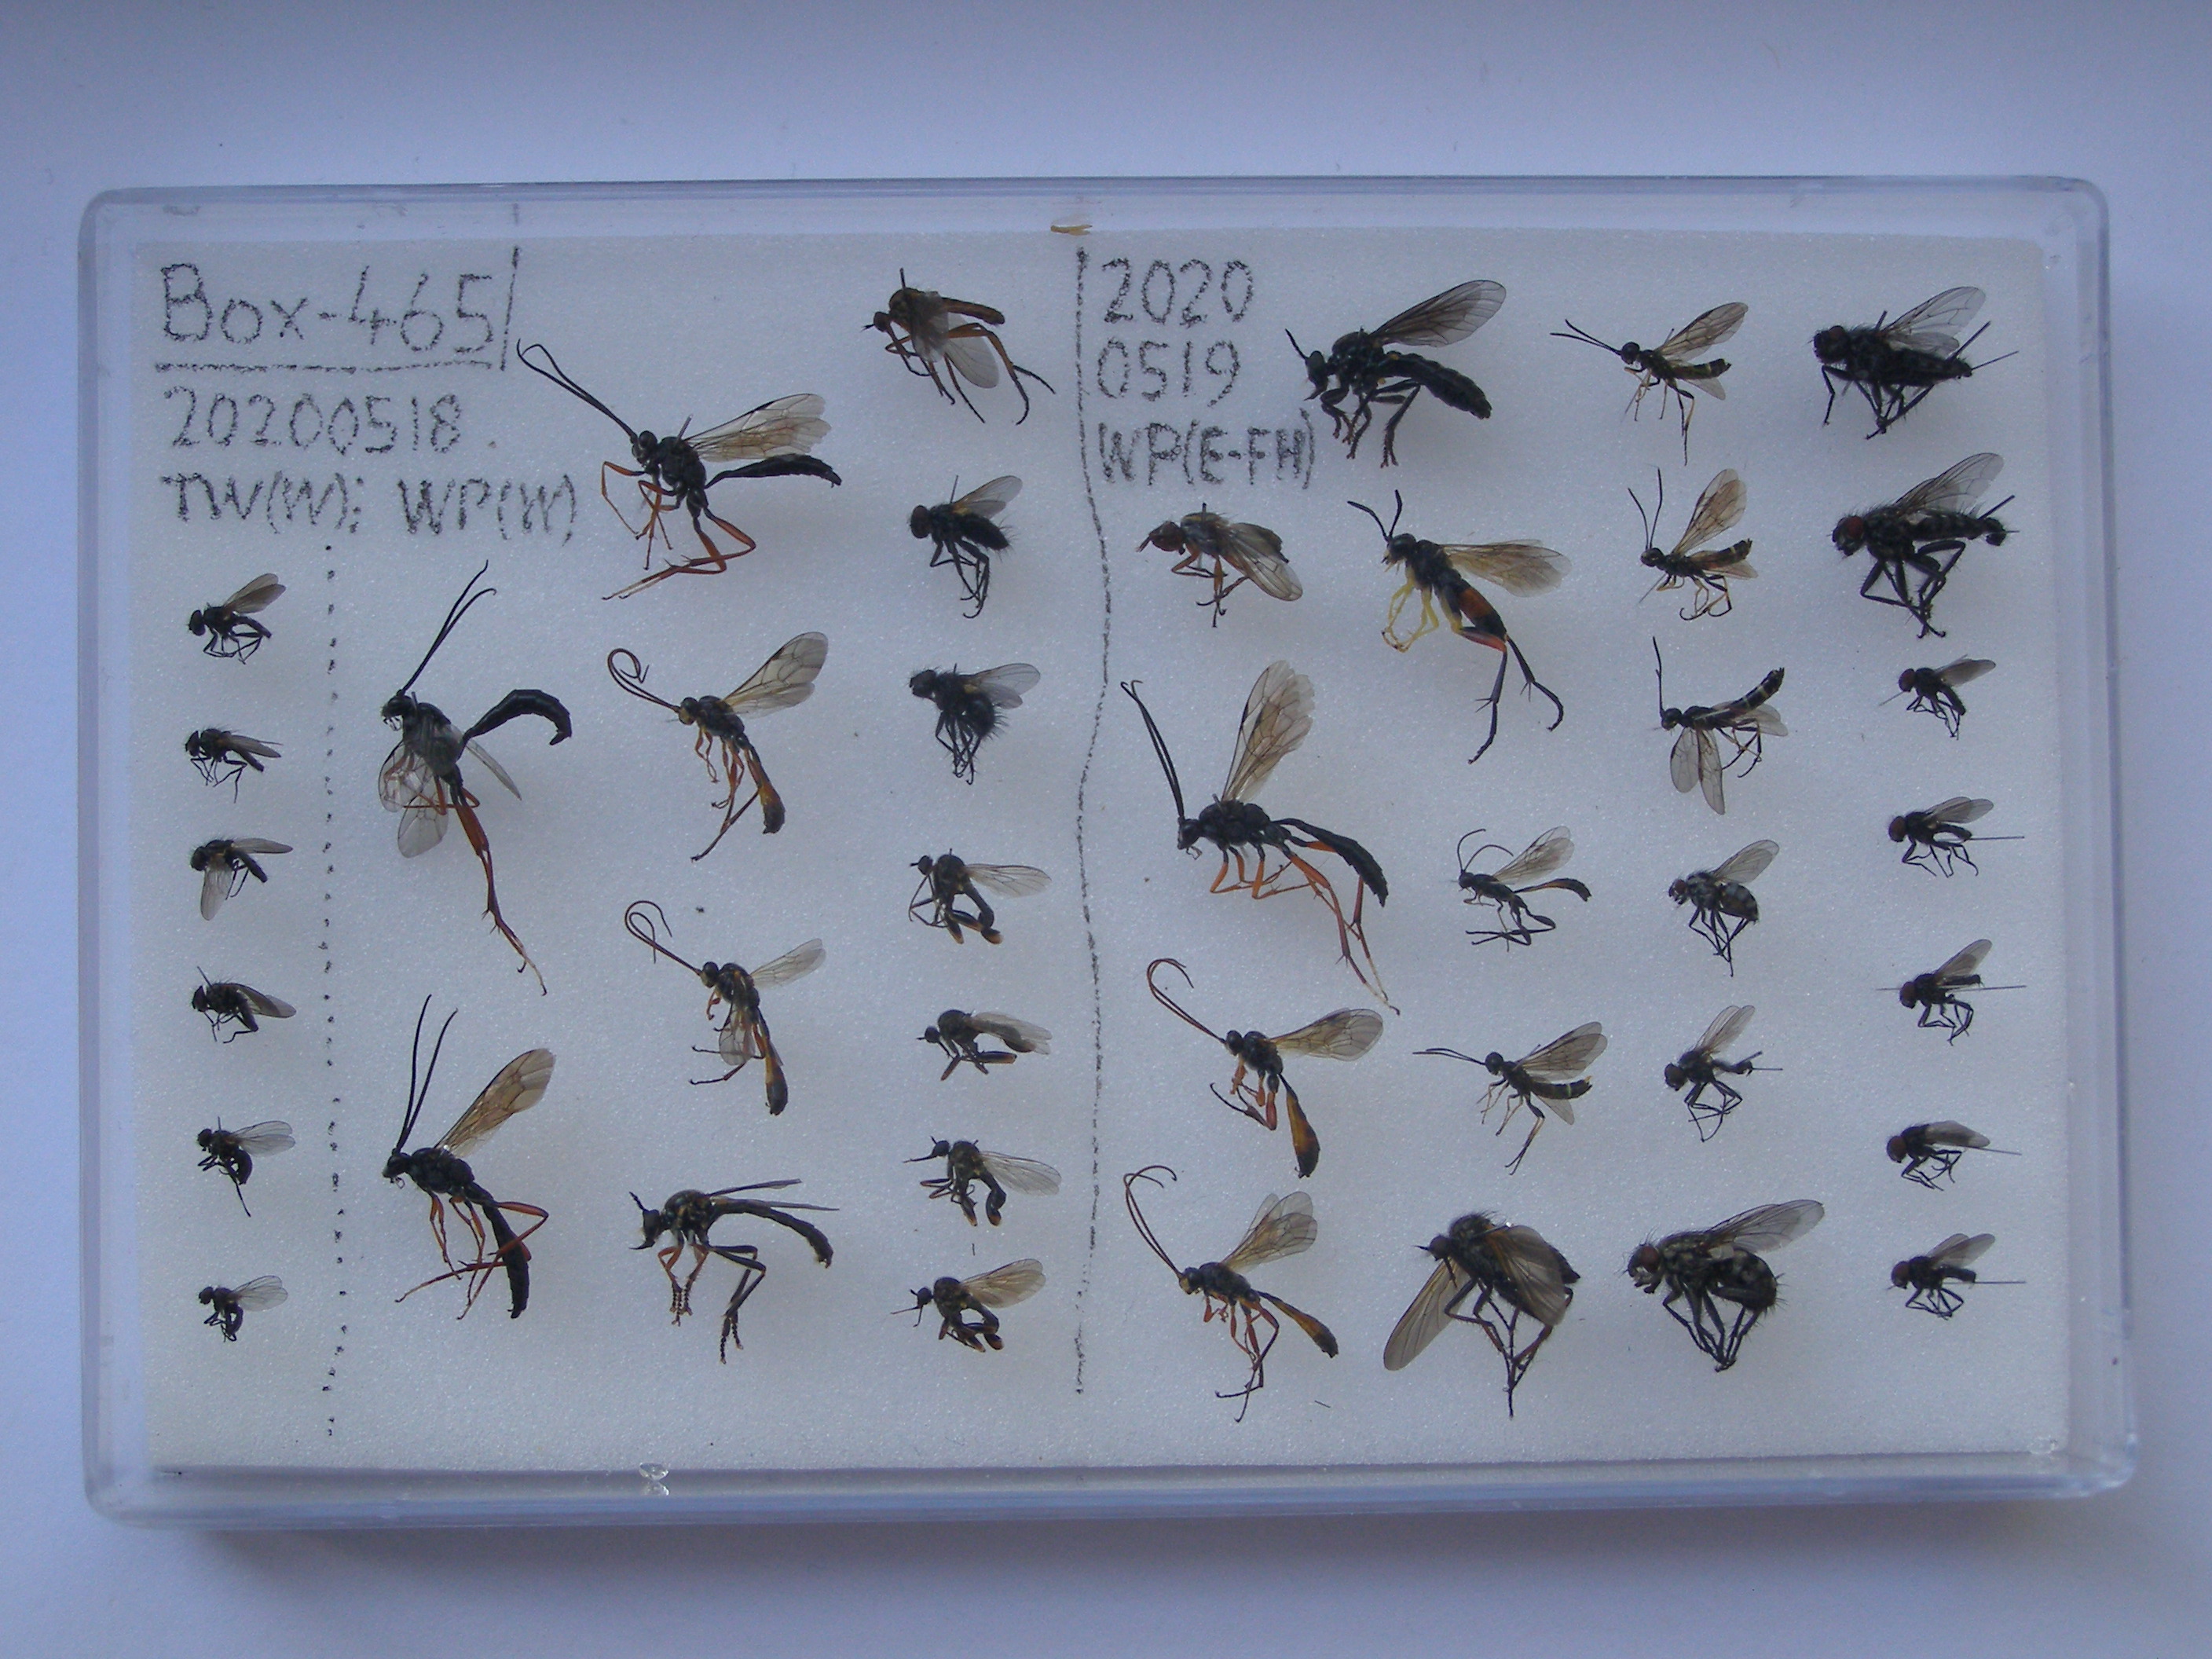 Box-465
20200518.
TW(W); WP(W)
2020
0519
WP(E-FH)